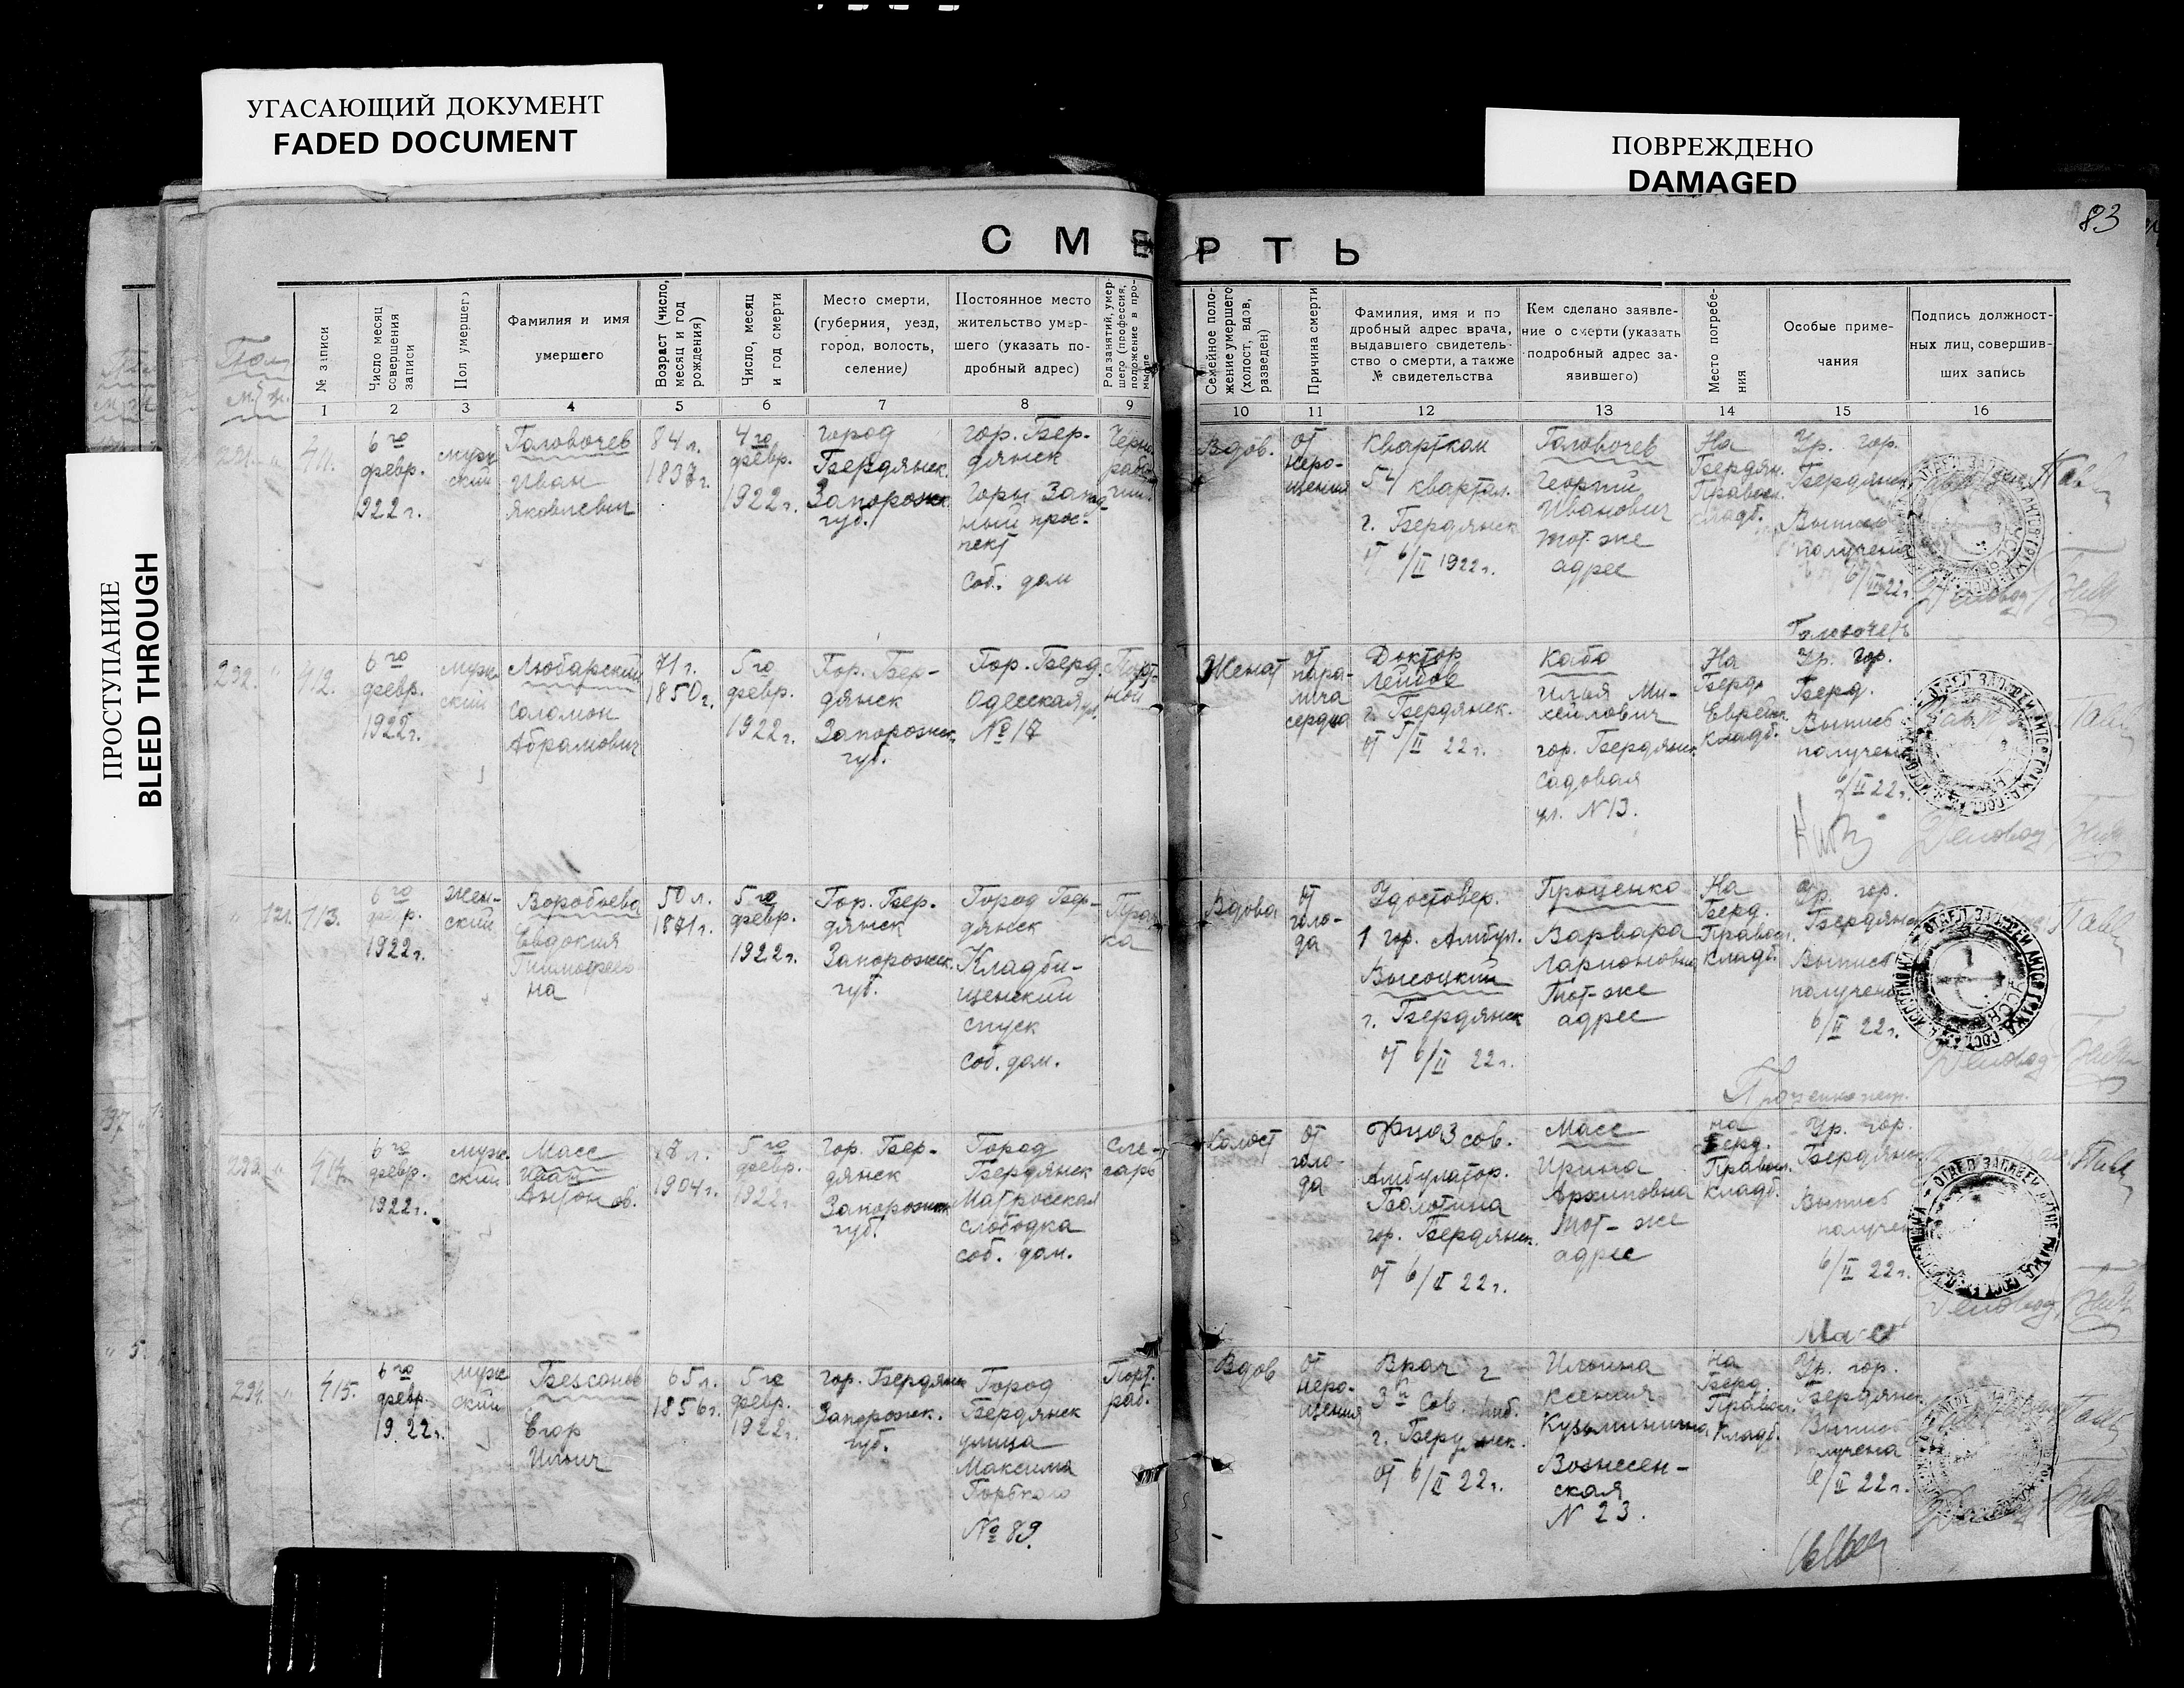 УГАСАЮЩИЙ ДОКУМЕНТ
FADED DOCUMENT
ПОВРЕЖДЕНО
DAMAGED
ПРОСТУПАНИЕ
BLEED THROUGH
83
СМЕРТЬ
№ записи
Число месяц совершения записи
Пол умершего
Фамилия и имя
умершего
Возраст (число, месяц и год рождения)
Число, месяц и год смерти
Место смерти,
(губерния, уезд,
город, волость,
селение)
Постоянное место
жительство умер-
шего (указать по-
дробный адрес)
Род занятий, умер-
шего (профессия,
положение в про-
мысле
Семейное поло-
жение умершего
(холост, вдов,
разведен)
Причина смерти
Фамилия, имя и по
дробный адрес врача,
выдавшего свидетель-
ство о смерти, а также
№ свидетельства
Кем сделано заявле-
ние о смерти (указать
подробный адрес за-
явившего)
Место погребе-
ния
Особые приме-
чания
Подпись должност-
ных лиц, совершив-
ших запись
1 2 3 4 5 6 7 8 9 10 11 12 13 14 15 16
411.
6го
февр.
922 г.
муж
ский
Головочев
Иван
Яковлевич
84 л.
1837 г.
4го
февр.
1922 г.
город
Бердянск
Запорожск.
губ.
гор. Бер-
дянск
Горы Запад-
ный прос-
пект
Соб. дом
Вдов.
от
исто-
щения
Квартком
54 квартал.
г. Бердянск
от 6/II 1922 г.
Головочев
Георгий
Иванович
тот-же
адрес
На
Бердян.
Правос.
кладб.
Ур. гор.
Бердянск
Выпись
получена
6/II 22 г.
Головочевъ
232.
412.
6го
февр.
1922 г.
муж
ский
Любарский
Соломон
Абрамович
71 г.
1850 г.
5го
февр.
1922 г.
Гор. Бер-
дянск
Запорожск.
губ.
Гор. Берд.
Одесская ул.
№ 17
Порт-
ной
Женат
от
пара-
лича
сердца
Доктор
г. Бердянск.
от 5/II 22 г.
Кабо
Илья Ми-
хейлович
гор. Бердянск
Садовая
ул. N 13.
На
Берд.
Еврейск.
кладб.
Ур. гор.
Берд.
Выпись
получена
6/II 22 г.
121.
413.
6го
февр.
1922 г.
Жен-
ский
Воробьева
Евдокия
Тимофеев
на
50 л.
1871 г.
5го
февр.
1922 г.
Гор. Бер-
дянск
Запорожск.
губ.
Город Бер-
дянск
Кладби-
щенский
спуск
соб. дом.
Вдова
от
голо-
да
Удостовер.
1 гор. Амбул.
Высоцкий
г. Бердянск
от 6/II 22 г.
Проценко
Варвара
Ларионовна
Тот-же
адрес
На
Берд.
Правос.
кладб.
Ур. гор.
Бердянск
Выпись
получена
6/II 22 г.
233.
414.
6го
февр.
1922 г.
муж.
ский
Масс
Иван
Антонов.
17 л.
1904 г.
5го
февр.
1922 г.
Гор. Бер-
дянск
Запорожск
губ.
Город
Бердянск
Матросская
слободка
соб. дом.
Сле-
сарь
Холост
от
голо-
да
сов.
Амбулатор.
Болотина
гор. Бердянск.
от 6/II 22 г.
Масс
Ирина
Архиповна
тот-же
адрес
на
Берд.
Правос.
кладб.
Ур. гор.
Бердянск
Выпись
получен
6/II 22 г.
Масс
234.
415.
6го
февр.
1922 г.
муж
ский
Бессонов
Егор
Ильич
65 л.
1856 г.
5го
февр.
1922 г.
гор. Бердянск
Запорожск.
губ.
Город
Бердянск
улица
Максима
Горького
№ 89.
Порт.
раб.
Вдов
от
исто-
щения
Врач
3й Сов. Амб.
г. Бердянск.
от 6/II 22 г.
Ильина
Ксения
Кузьминична
Вознесен-
ская
N 23.
на
Берд.
Правос.
кладб.
Ур. гор.
Бердянск.
Выпись
получена
6/II 22 г.